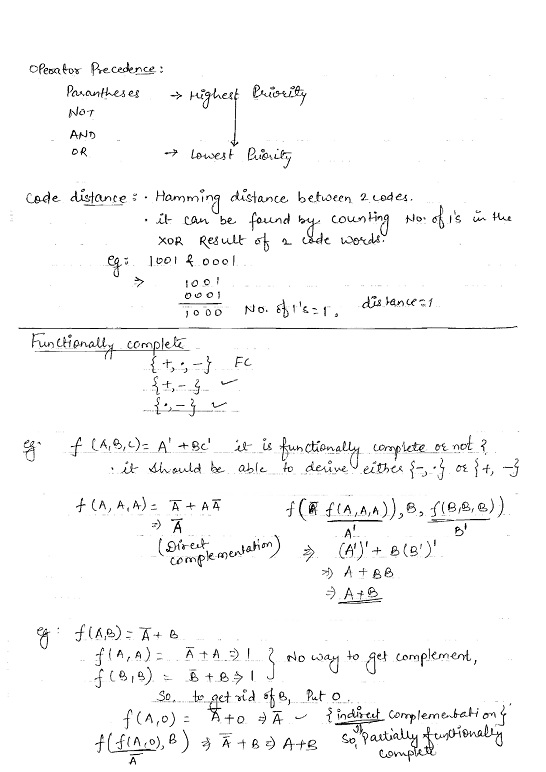 Operator Precedence :
Parantheses → Highest Priority
NOT
AND
OR → Lowest Priority
Code distance : · Hamming distance between 2 codes.
· it can be found by counting No. of 1's in the
XOR Result of 2 code words.
eg: 1001 & 0001
⇒ 1001
0001
1000 No. of 1's = 1, distance = 1
Functionally complete
{+, ·, -} FC
{+, -} ✓
{·, -} ✓
eg. f (A,B,C) = A' + BC' it is functionally complete or not ?
· it should be able to derive either {-, ·} or {+, -}
f (A, A, A) = A̅ + AA̅ f( f(A,A,A)), B, f(B,B,B))
⇒ A̅ A' B'
(Direct complementation) ⇒ (A')' + B(B')'
⇒ A + BB
⇒ A+B
eg : f(A,B) = A̅ + B
f(A, A) = A̅ + A ⇒ 1 } No way to get complement,
f(B, B) = B̅ + B ⇒ 1
So, to get rid of B, Put 0.
f(A,0) = A̅ + 0 ⇒ A̅ ✓ {indirect complementation}
f(f(A,0), B) ⇒ A̅ + B ⇒ A+B So, it's Partially functionally
A̅ complete